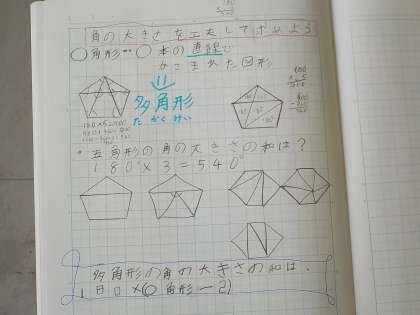 角の大きさを工夫して求めよう
○角形…○本の直線で
かこまれた図形
多角形
たかくけい
・五角形の角の大きさの和は?
180°×3=540°
多角形の角の大きさの和は、
180×(○角形-2)